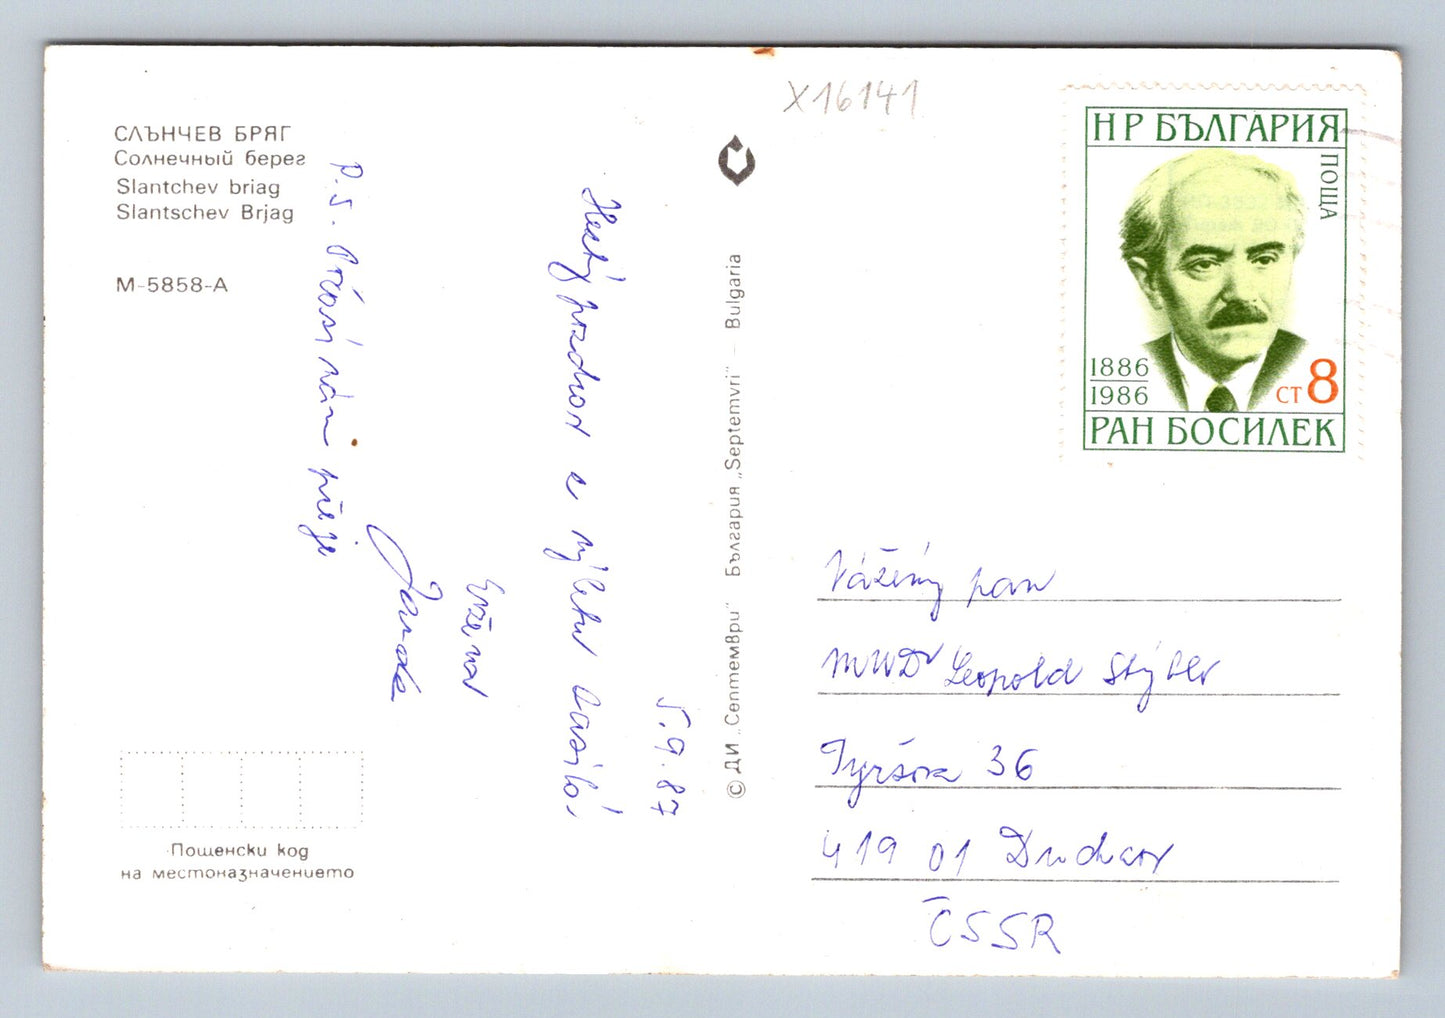 X16141
СЛЪНЧЕВ БРЯГ
Солнечный берег
Slantchev briag
Slantschev Brjag
М-5858-А
5.9.87
Hezký pozdrav z výletu zasílá
Evžena
Jarda
P.S. Počasí nám přeje
Пощенски код
на местоназначението
© ДИ „Септември“ България „Septemvri“ – Bulgaria
НР БЪЛГАРИЯ
ПОЩА
1886
1986
СТ 8
РАН БОСИЛЕК
Vážený pan
MUDr Leopold
Tyršova 36
419 01 Duchcov
ČSSR